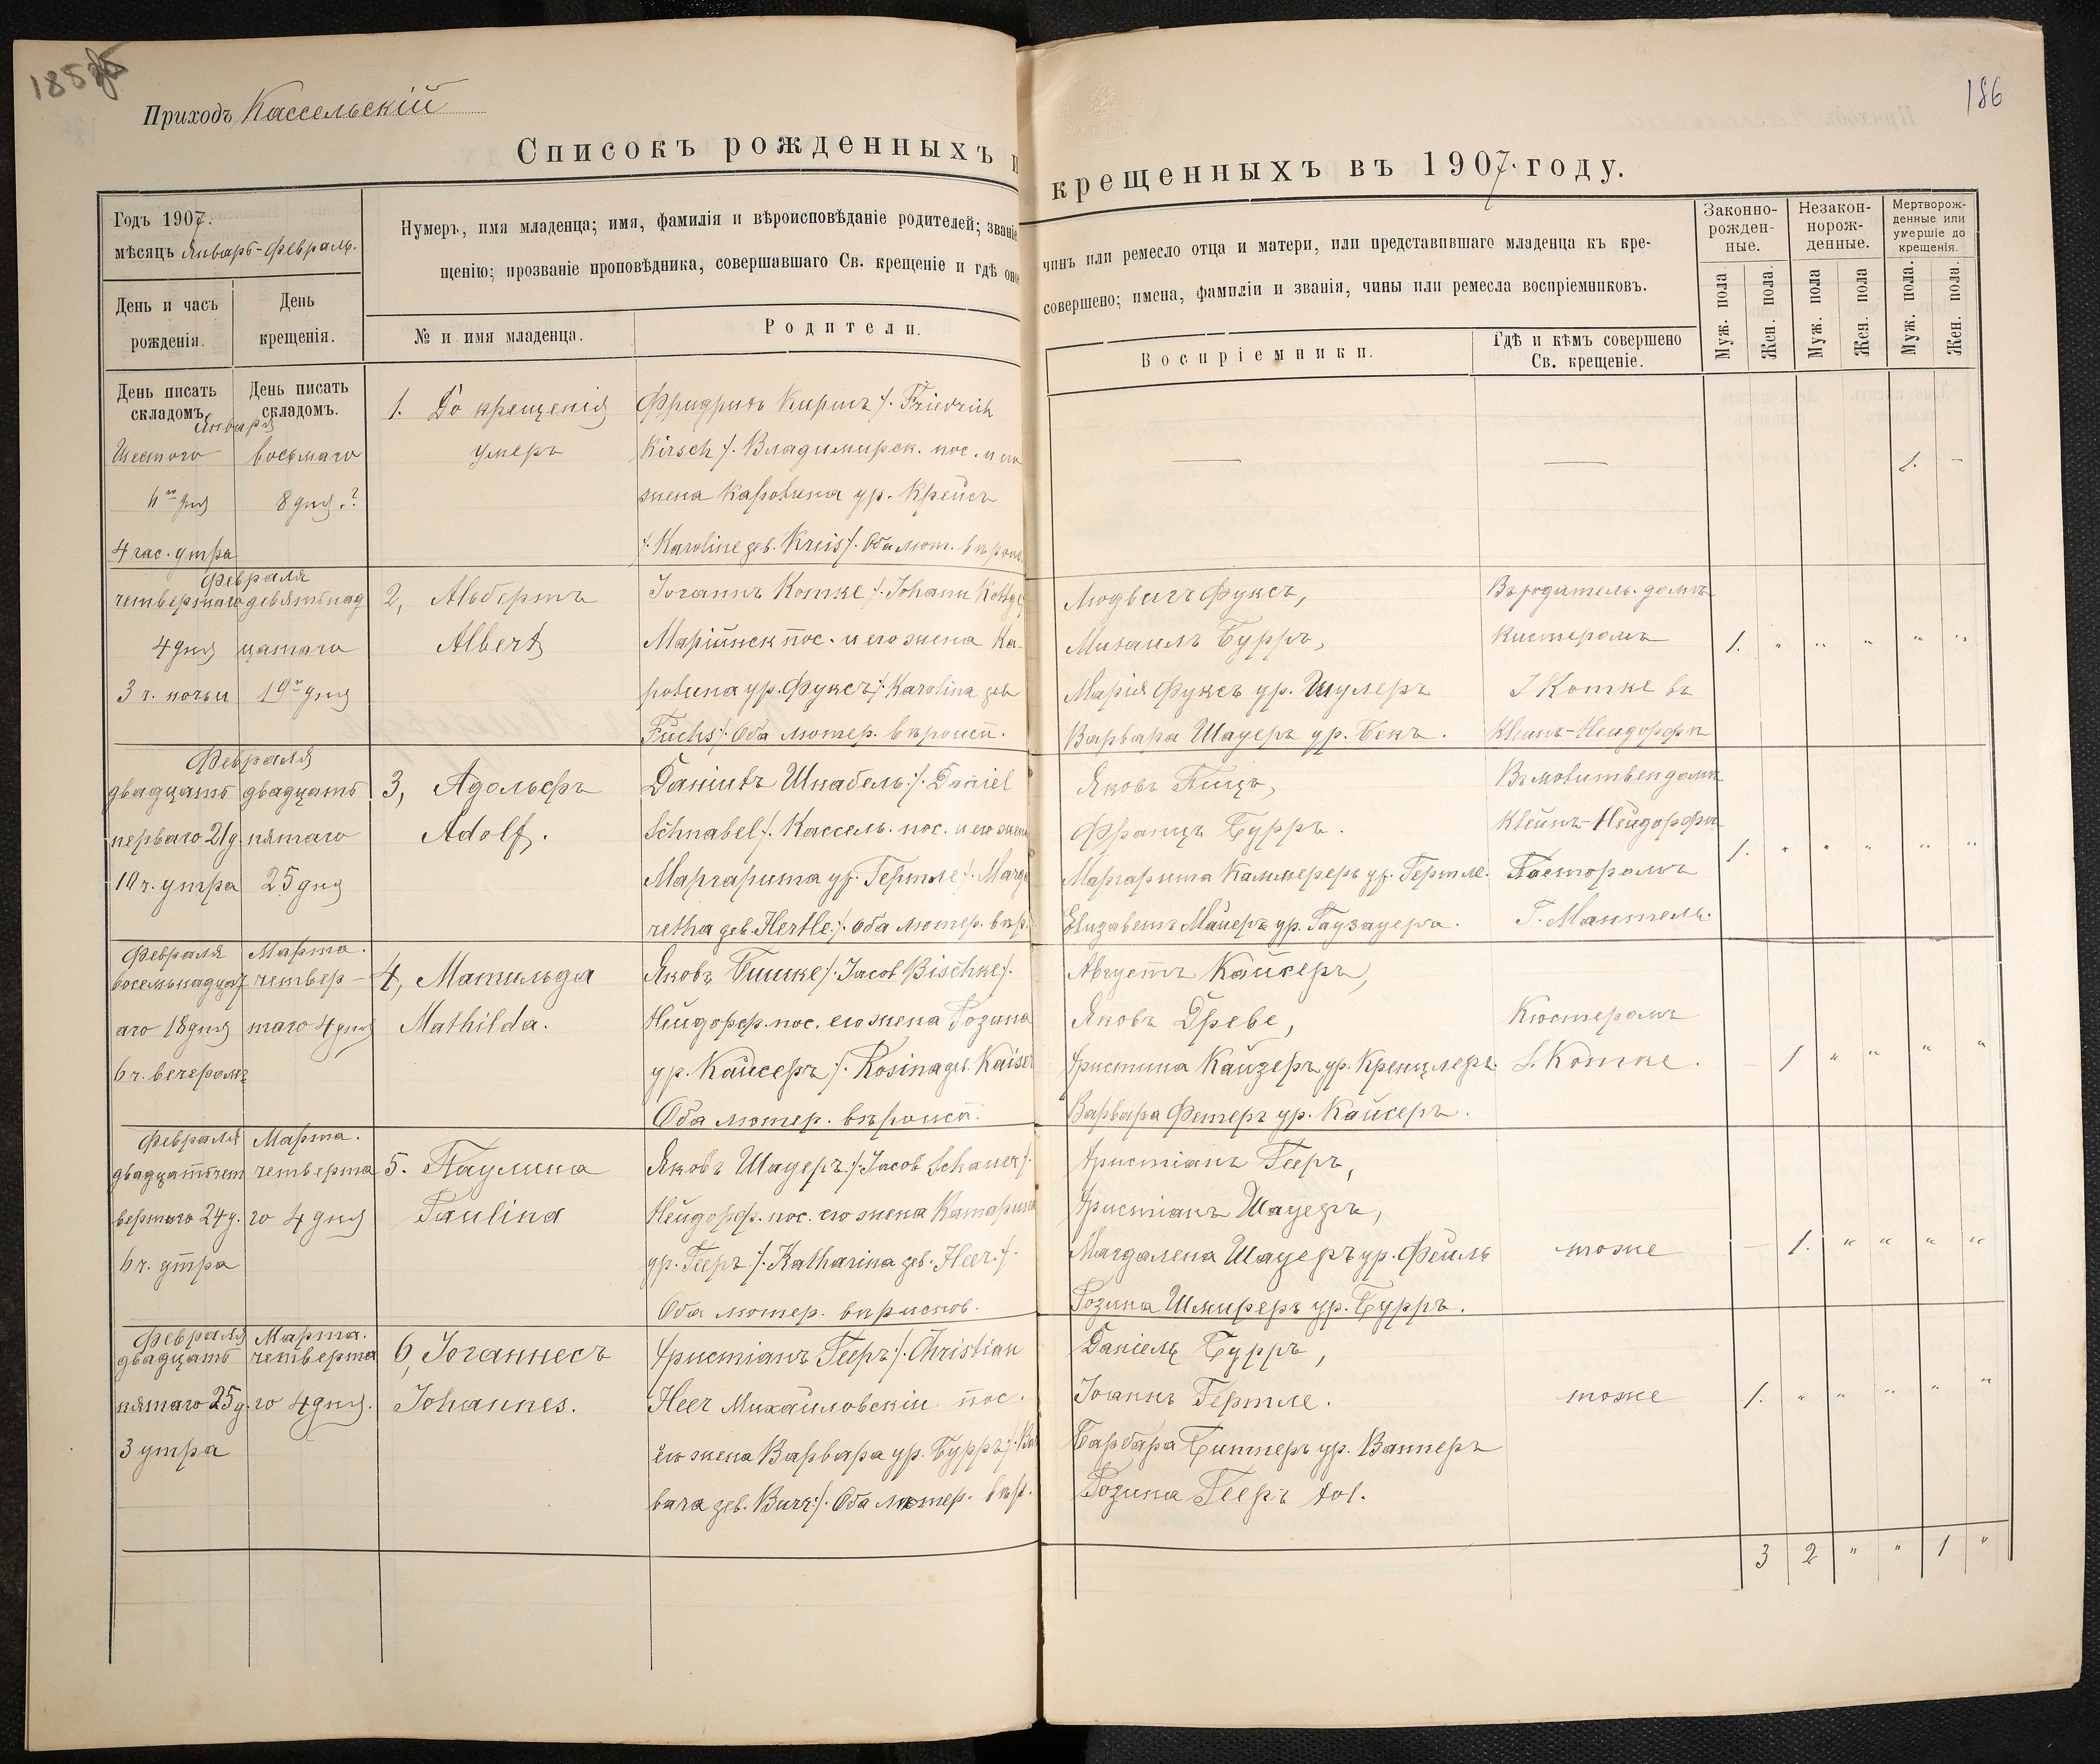 185
186
Приходъ Кассельскій
Списокъ рожденныхъ и крещенныхъ въ 1907 году.
Годъ 1907.
мѣсяцъ Январь-Февраль.
Нумеръ, имя младенца; имя, фамилія и вѣроисповѣданіе родителей; званіе
чинъ или ремесло отца и матери, или представившаго младенца къ кре-
щенію; прозваніе проповѣдника, совершавшаго Св. крещеніе и гдѣ оное
совершено; имена, фамиліи и званія, чины или ремесла воспріемниковъ.
Законно-
рожден-
ные.
Незакон-
норож-
денные.
Мертворож-
денные или
умершіе до
крещенія.
День и часъ
рожденія.
День
крещенія.
№ и имя младенца.
Родители.
Воспріемники.
Гдѣ и кѣмъ совершено
Св. крещеніе.
Муж. пола
Жен. пола.
Муж. пола
Жен. пола
Муж. пола.
Жен. пола.
День писать
складомъ.
День писать
складомъ.
Января
Шестого
6го дня
4 час. утра
восьмаго
8 дня.?
1. До крещенія
умеръ
Фридрихъ Киршъ /. Friedrich
Kirsch /. Владимирск. пос. и его
жена Каролина ур. Крейсъ
/. Karoline geb. Kreis /. Оба лют. вѣроис.
— — 1. —
Февраля
четвертаго
4 дня
3 ч. ночи
девятьнад
цатаго
19го дня
2, Альбертъ
Albert
Іоганнъ Котке /. Johann Kottge
Марійнск пос. и его жена Ка-
ролина ур. Фуксъ /. Karolina geb
Fuchs /. Оба лютер. вѣроисп.
Людвигъ Фуксъ,
Михаилъ Бурръ,
Марія Фуксъ ур. Шулеръ
Варвара Шауеръ ур. Бекъ.
Въ родитель. домѣ
Кистеромъ
I Котке въ
Клейнъ-Нейдорфѣ
1. " " " " "
Февраля
двадцать
перваго 21 д.
10 ч. утра
двадцать
пятаго
25 дня
3, Адольфъ
Adolf.
Даніилъ Шнабель /. Daniel
Schnabel /. Кассель. пос. и его жена
Маргарита ур. Гертле /. Marga
retha geb. Hertle /. Оба лютер. вѣр.
Яковъ Тицъ,
Францъ Бурръ.
Маргарита Каммереръ ур. Гертле.
Елизаветъ Майеръ ур. Гаузауеръ.
Въ молитвен домѣ
Клейнъ-Нейдорфѣ
Пасторомъ
Г. Мантель.
1. " " " " "
Февраля
восемьнадцат
аго 18 дня
6 ч. вечеромъ
Марта.
четвер-
таго 4 дня
4, Матильда
Mathilda.
Яковъ Бишке /. Jacob Bischke /.
Нейдорф. пос. его жена Розина
ур. Кайсеръ /. Rosina geb. Kaiser
Оба лютер. вѣроисп.
Августъ Кайсеръ,
Яковъ Древе,
Христина Кайзеръ ур. Кренцлеръ.
Варвара Фетеръ ур. Кайсеръ.
Кюстеромъ
I. Котке.
— 1 " " " "
Февраля
двадцатьчет
вертаго 24 д.
6 ч. утра
Марта.
четверта
го 4 дня
5. Паулина
Paulina
Яковъ Шауеръ /. Jacob Schauer /.
Нейдорф. пос. его жена Катарина
ур. Гееръ /. Katharina geb. Heer. /.
Оба лютер. вѣриспов.
Христіанъ Гееръ,
Христіанъ Шауеръ,
Магдалена Шауеръ ур. Фейль
Розина Шмиреръ ур. Бурръ.
тоже
— 1. " " " "
Февраля
двадцать
пятаго 25 д.
3 утра
Марта.
четверта
го 4 дня.
6, Іоганнесъ
Johannes.
Христіанъ Гееръ /. Christian
Heer Михайловскій пос.
его жена Варвара ур. Бурръ /. Bar
bara geb. Burr /. Оба лютер. вѣр.
Даніелъ Бурръ,
Іоаннъ Гертле.
Барбара Битнеръ ур. Ваннеръ
Розина Гееръ
тоже
1. " " " " "
3 2 " " 1 "